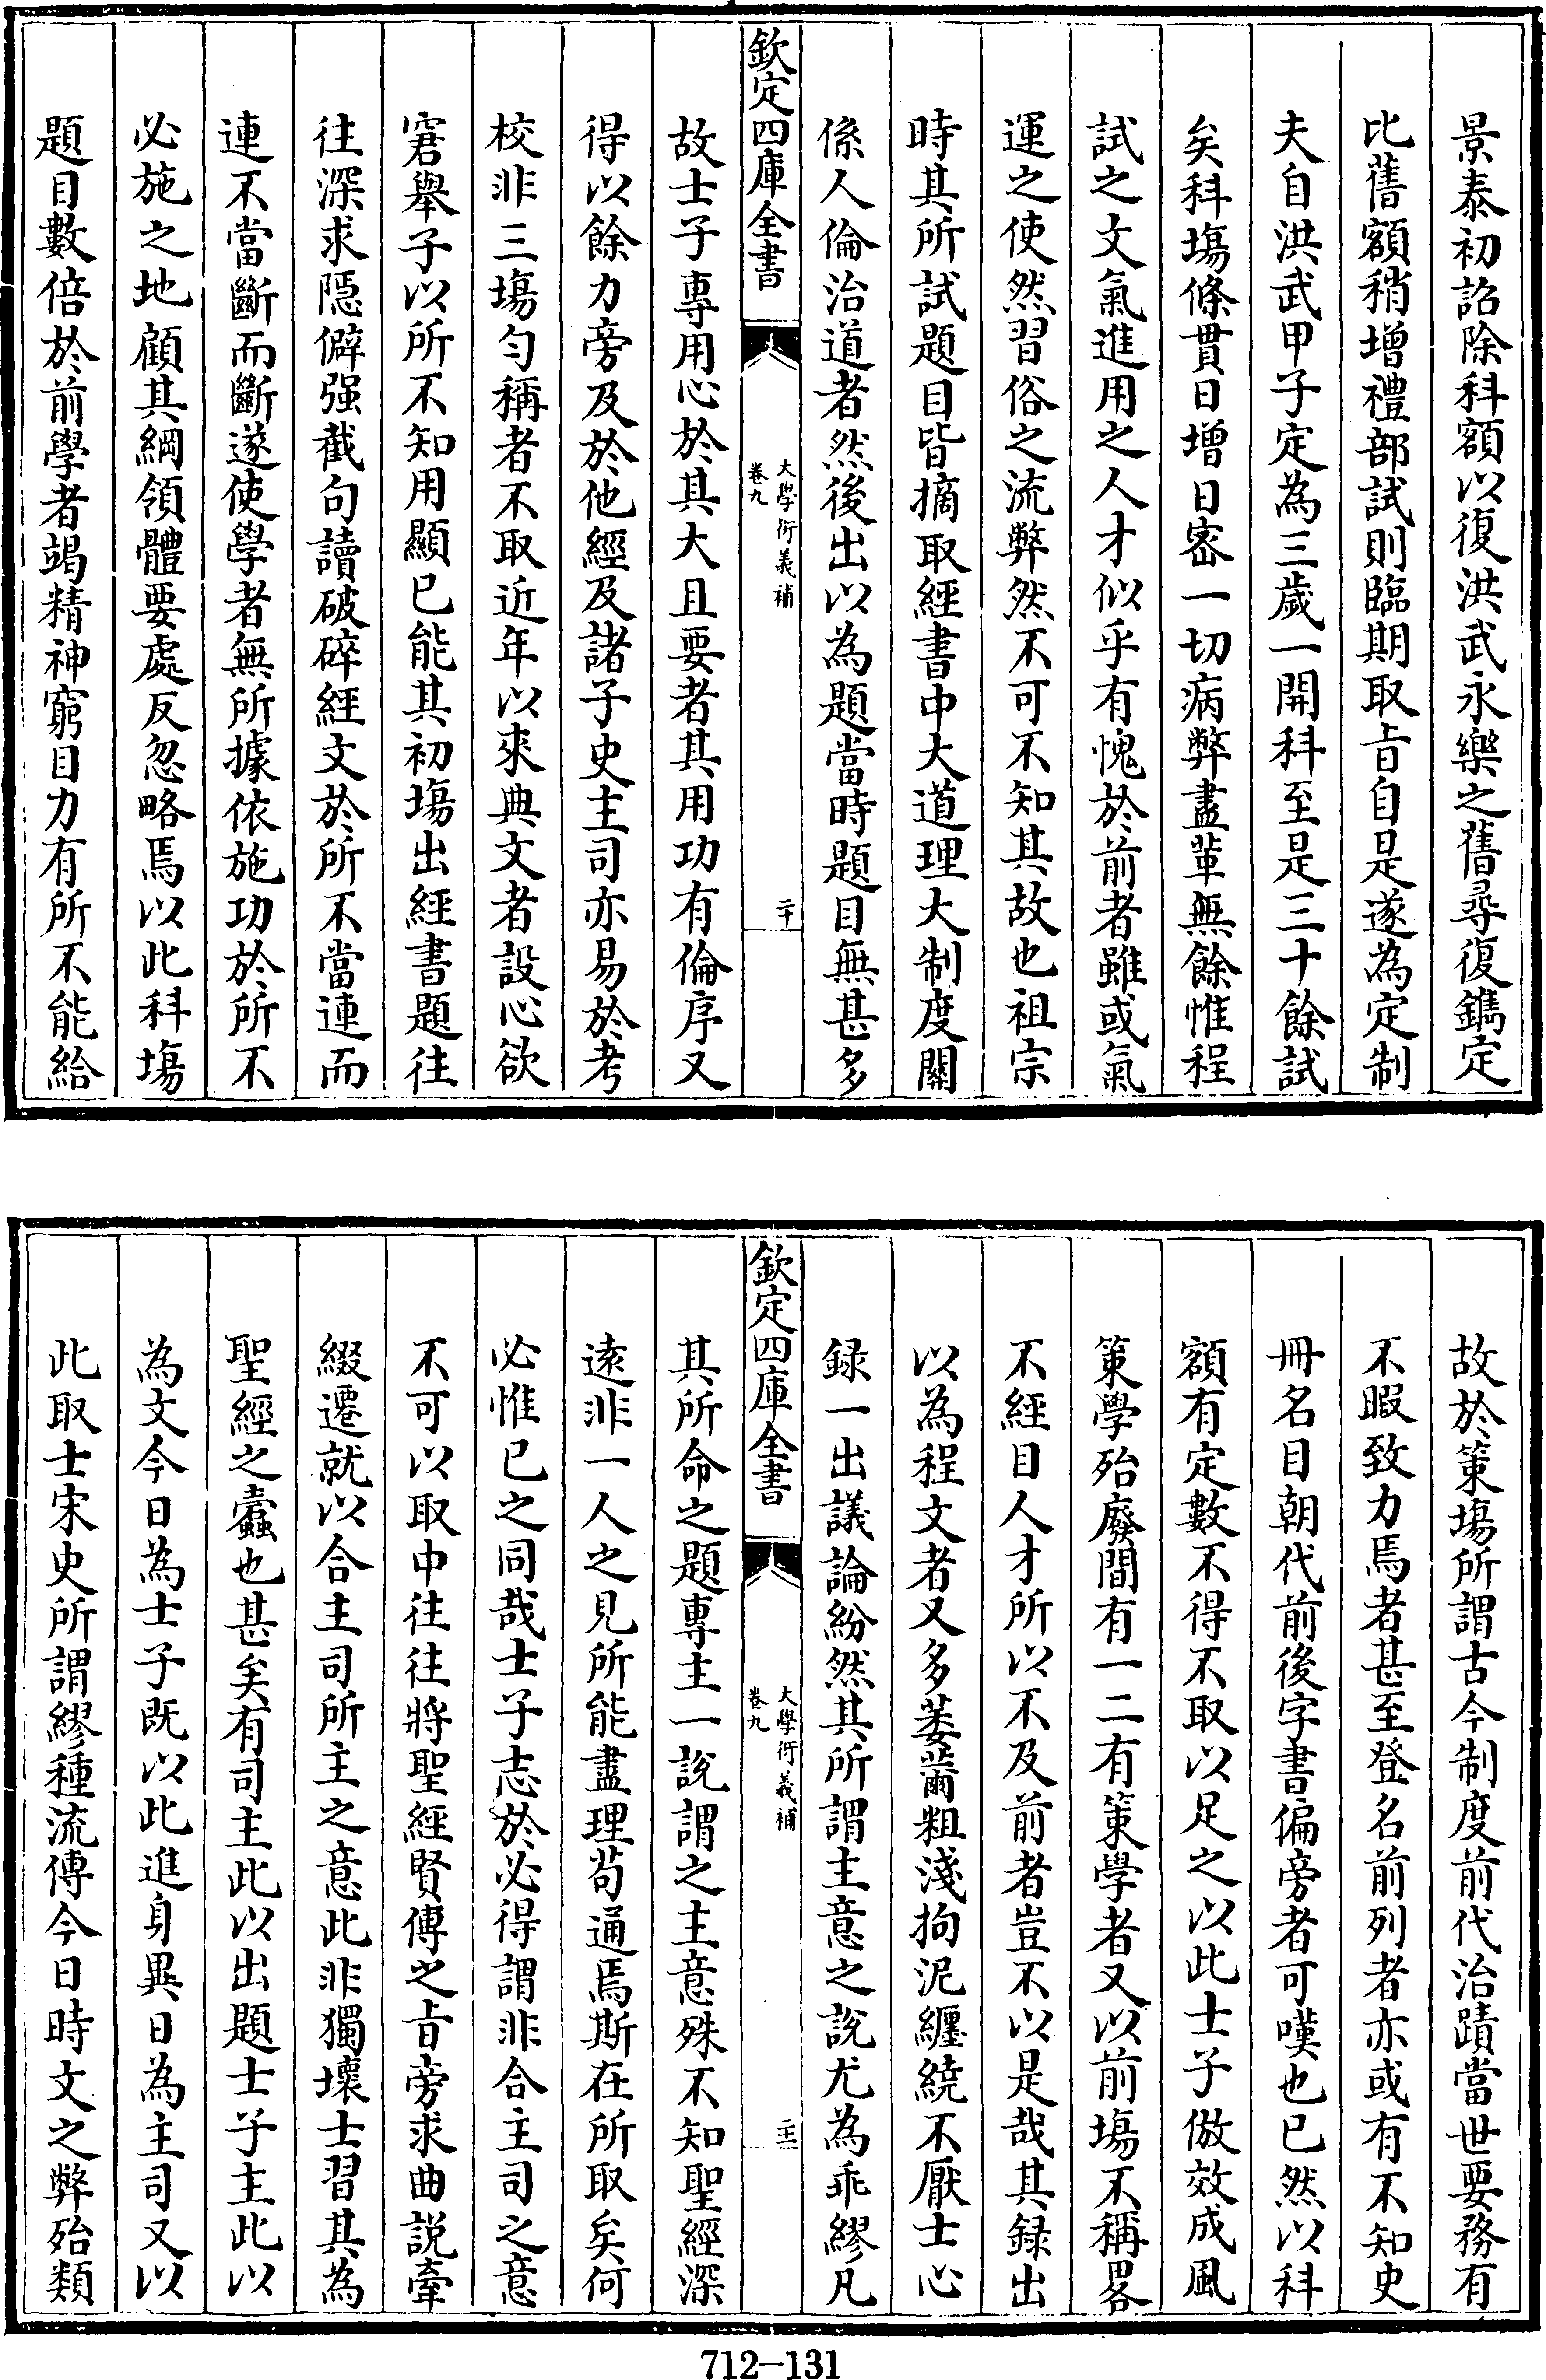 景泰初詔除科額以復洪武永樂之舊尋復鐫定
比舊額稍增禮部試則臨期取旨自是遂為定制
夫自洪武甲子定為三歲一開科至是三十餘試
矣科塲條貫日增日宻一切病弊盡革無餘惟程
試之文氣進用之人才似乎有愧於前者雖或氣
運之使然習俗之流弊然不可不知其故也祖宗
時其所試題目皆摘取經書中大道理大制度關
係人倫治道者然後出以為題當時題目無甚多
欽定四庫全書
大學衍義補
卷九
二十
故士子專用心於其大且要者其用功有倫序又
得以餘力旁及於他經及諸子史主司亦易於考
校非三塲勻稱者不取近年以來典文者設心欲
窘舉子以所不知用顯已能其初塲出經書題往
往深求隱僻强截句讀破碎經文於所不當連而
連不當斷而斷遂使學者無所據依施功於所不
必施之地顧其綱領體要處反忽略焉以此科塲
題目數倍於前學者竭精神窮目力有所不能給
故於策塲所謂古今制度前代治蹟當世要務有
不暇致力焉者甚至登名前列者亦或有不知史
冊名目朝代前後字書偏旁者可嘆也已然以科
額有定數不得不取以足之以此士子倣效成風
策學殆廢間有一二有策學者又以前塲不稱畧
不經目人才所以不及前者豈不以是哉其録出
以為程文者又多萎薾粗淺拘泥纏繞不厭士心
録一出議論紛然其所謂主意之說尤為乖繆凡
欽定四庫全書
大學衍義補
卷九
二十一
其所命之題專主一說謂之主意殊不知聖經深
逺非一人之見所能盡理苟通焉斯在所取矣何
必惟已之同哉士子志於必得謂非合主司之意
不可以取中往往將聖經賢傳之旨旁求曲説牽
綴遷就以合主司所主之意此非獨壞士習其為
聖經之蠹也甚矣有司主此以出題士子主此以
為文今日為士子既以此進身異日為主司又以
此取士宋史所謂繆種流傳今日時文之弊殆類
712—131